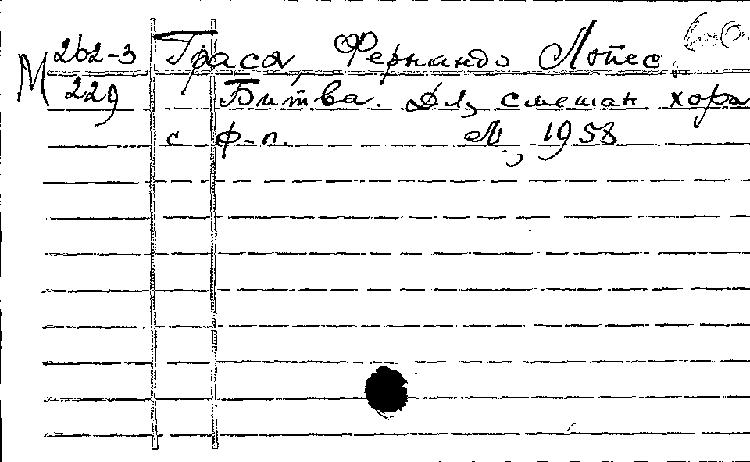 М 262-3 Граса, Фернандо Лопес.
229 Битва. Для смешан хора
с ф-п. М., 1958